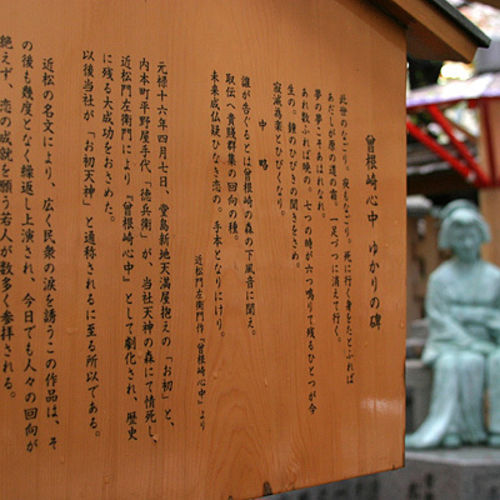 曾根崎心中 ゆかりの碑
此世のなごり。夜もなごり。死に行く身をたとふれば
あだしが原の道の霜。一足づつに消えて行く。
夢の夢こそあはれなれ
あれ数ふれば暁の。七つの時が六つ鳴りて残るひとつが今
生の。鐘のひびきの聞きをさめ。
寂滅為楽とひびくなり。
中略
誰が告ぐるとは曾根崎の森の下風音に聞え。
取伝へ貴賤群集の回向の種。
未来成仏疑ひなき恋の。手本となりにけり。
近松門左衛門作『曾根崎心中』より
元禄十六年四月七日、堂島新地天満屋抱えの「お初」と、
内本町平野屋手代「徳兵衛」が、当社天神の森にて情死し、
近松門左衛門により『曾根崎心中』として劇化され、歴史
に残る大成功をおさめた。
以後当社が「お初天神」と通称されるに至る所以である。
近松の名文により、広く民衆の涙を誘うこの作品は、そ
の後も幾度となく繰返し上演され、今日でも人々の回向が
絶えず、恋の成就を願う若人が数多く参拝される。